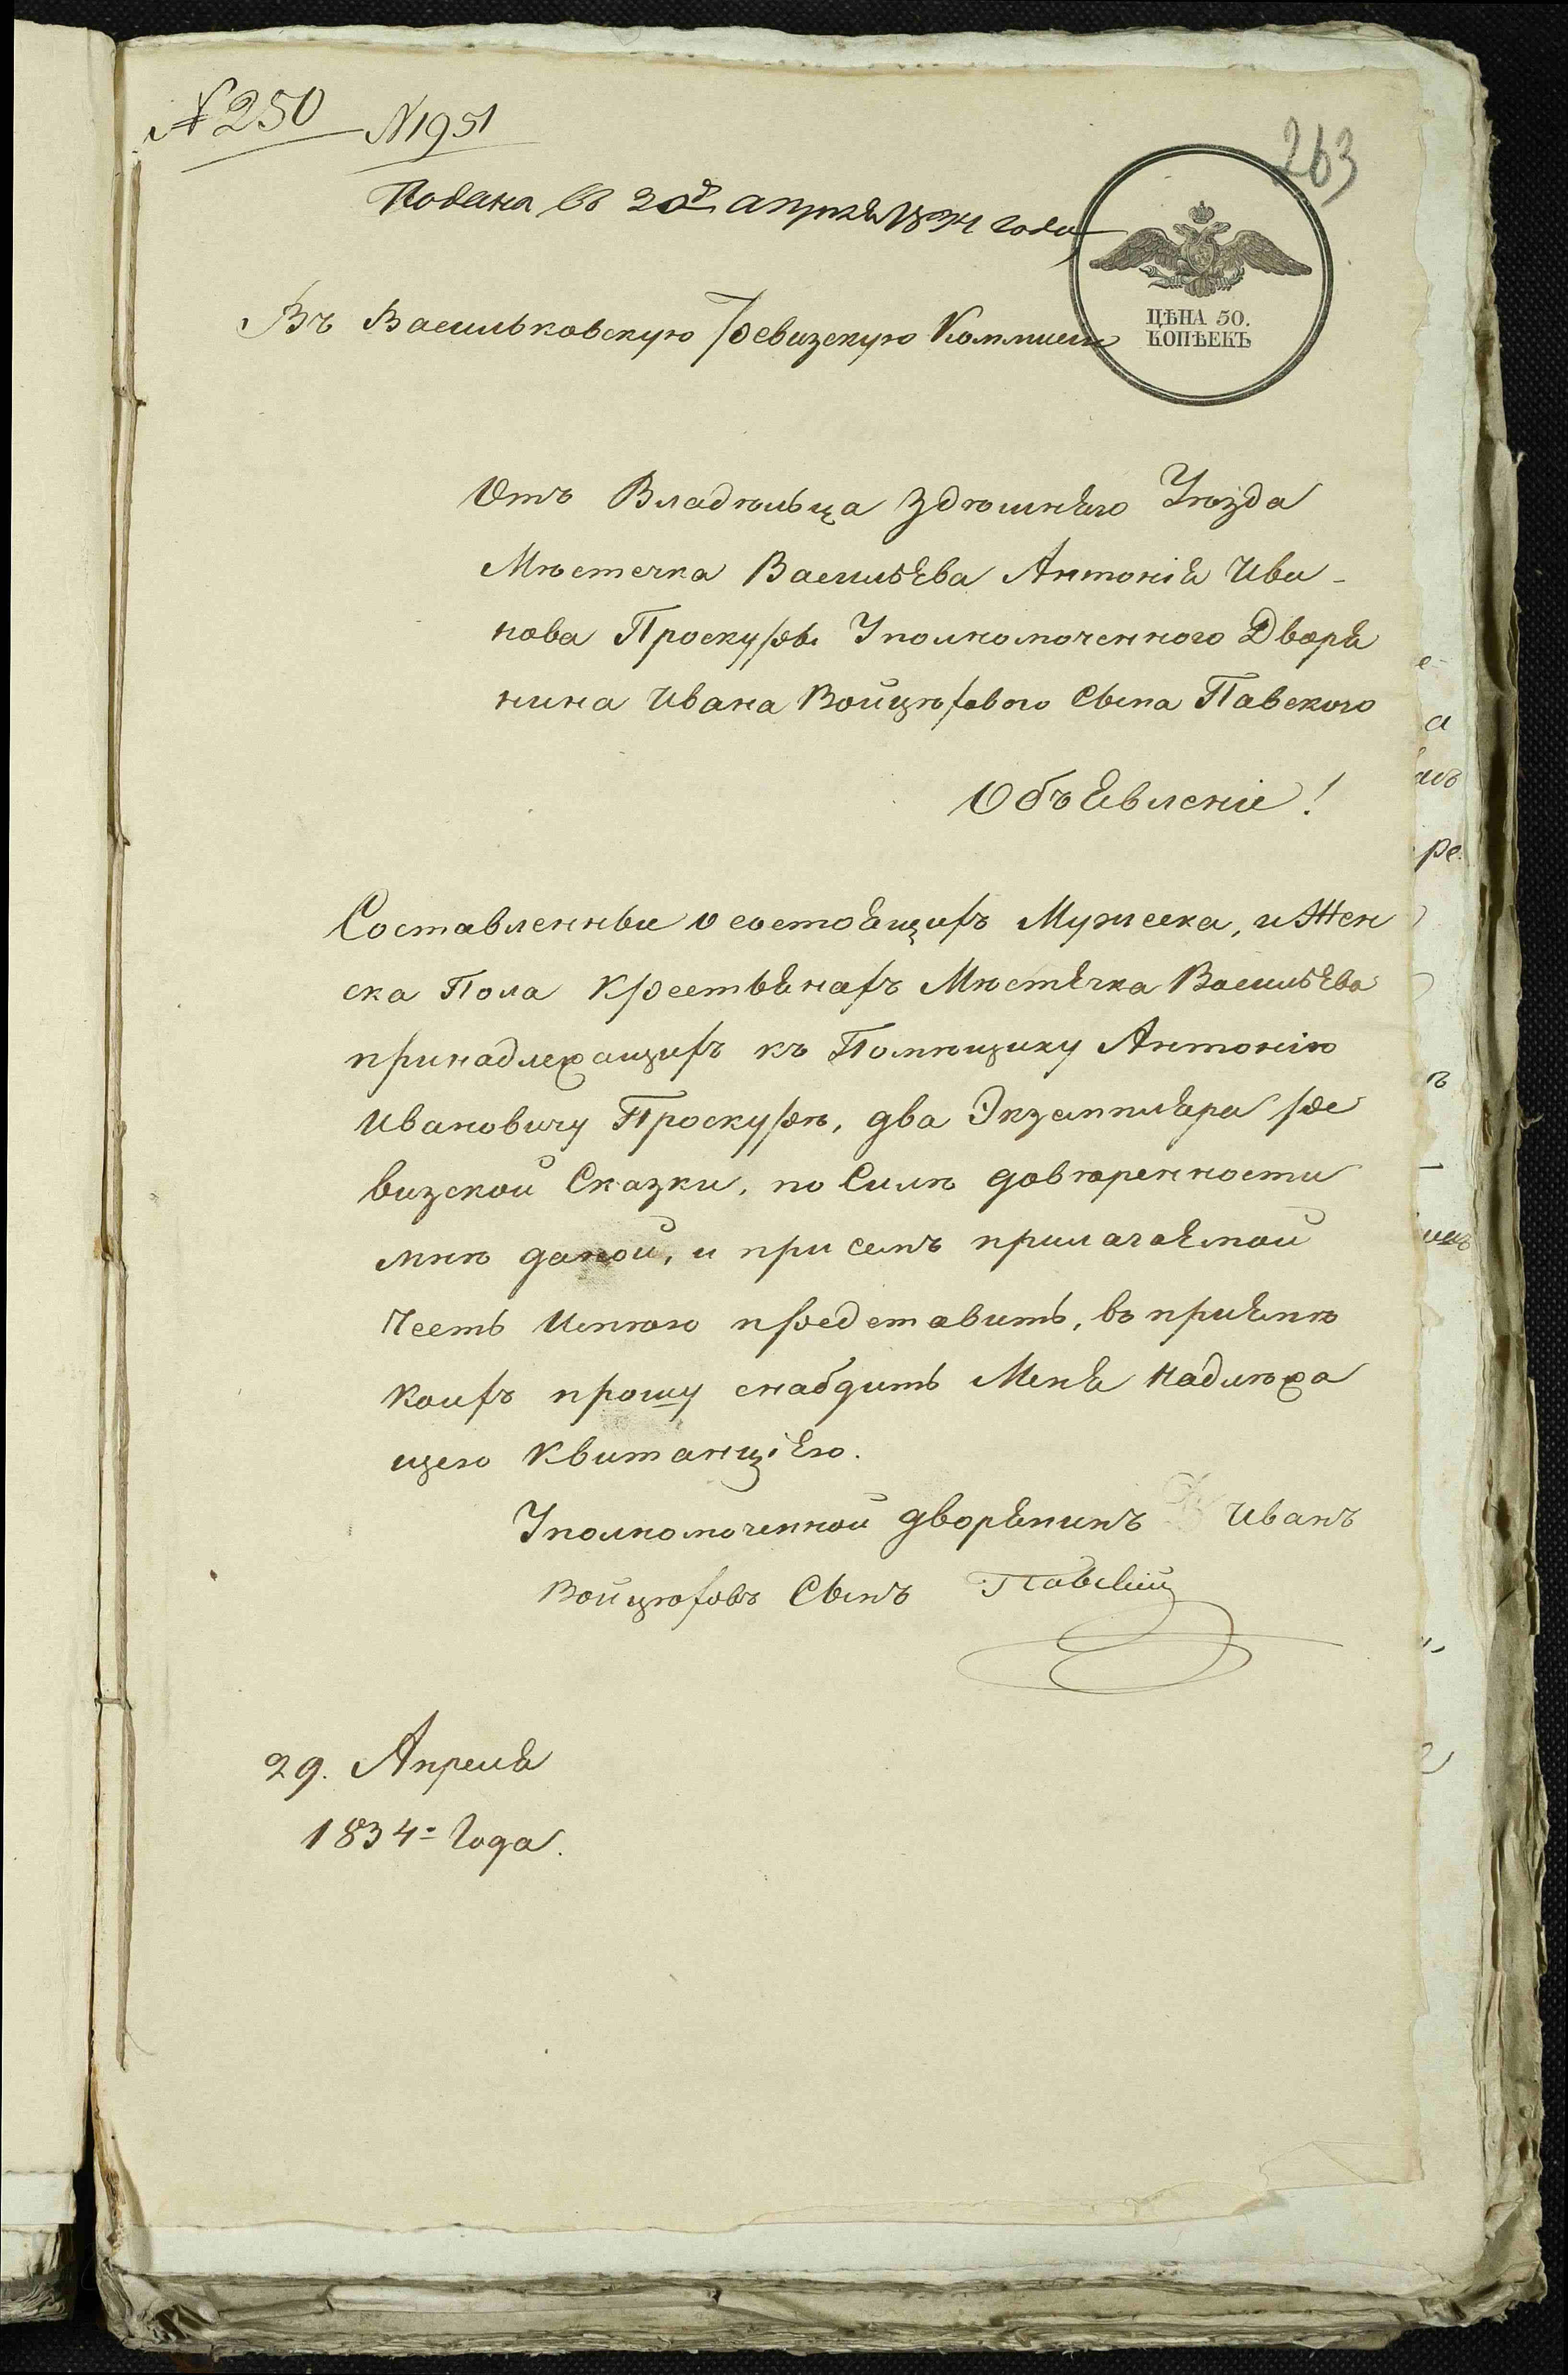 № 250 № 1951
263
Подана въ 30й апрѣля 1834 года
ЦѢНА 50.
КОПѢЕКЪ
Въ Васильковскую Ревизскую Коммиси
Отъ Владѣльца Здѣшняго Уѣзда
Мѣстечка Василѣва Антонія Ива-
нова Проскуры Уполномоченного Дворя
нина Ивана Войцѣхового Сына Павского
Объявленіе!
Составленные о состоящихъ Мужеска, и Жен
ска Пола Крестьянахъ Мѣстечка Василѣва
принадлежащихъ къ Помѣщику Антонію
Ивановичу Проскурѣ, два Экземпляра Ре
визской Сказки, по Силѣ довѣренности
мнѣ даной, и при семъ прилагаемой
Честь Имѣю представить, въ приемѣ
коихъ прошу снабдить Меня Надлѣжа
щею Квитанціею.
Уполномоченной дворянинъ Иванъ
Войцѣховъ Сынъ Павскій
29. Апреля
1834= Года.